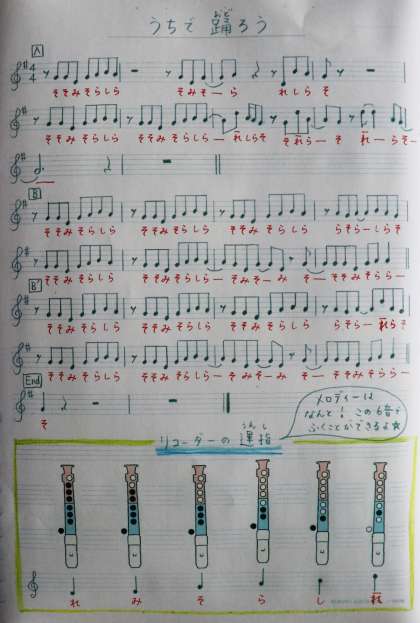 うちで踊ろう
おど
A
そそみそらしら そみそーら れしらそ
そそみそらしら そそみそらしらー れしらそ それらー そ れーらそー
B
そそみそらしら そそみそらしら そそみそらしら らそらーしらそ
そそみそらしら そそみそらしらー そそみそーみ そー
B'
そそみそらしら そそみそらしら そそみそらしら そらそーれらそ
そそみそらしら そそみそらしらー そそみそーみ そー
End
そ
メロディーは
なんと！この6音で
ふくことができるよ
うんし
リコーダーの運指
れ み そ ら し れ